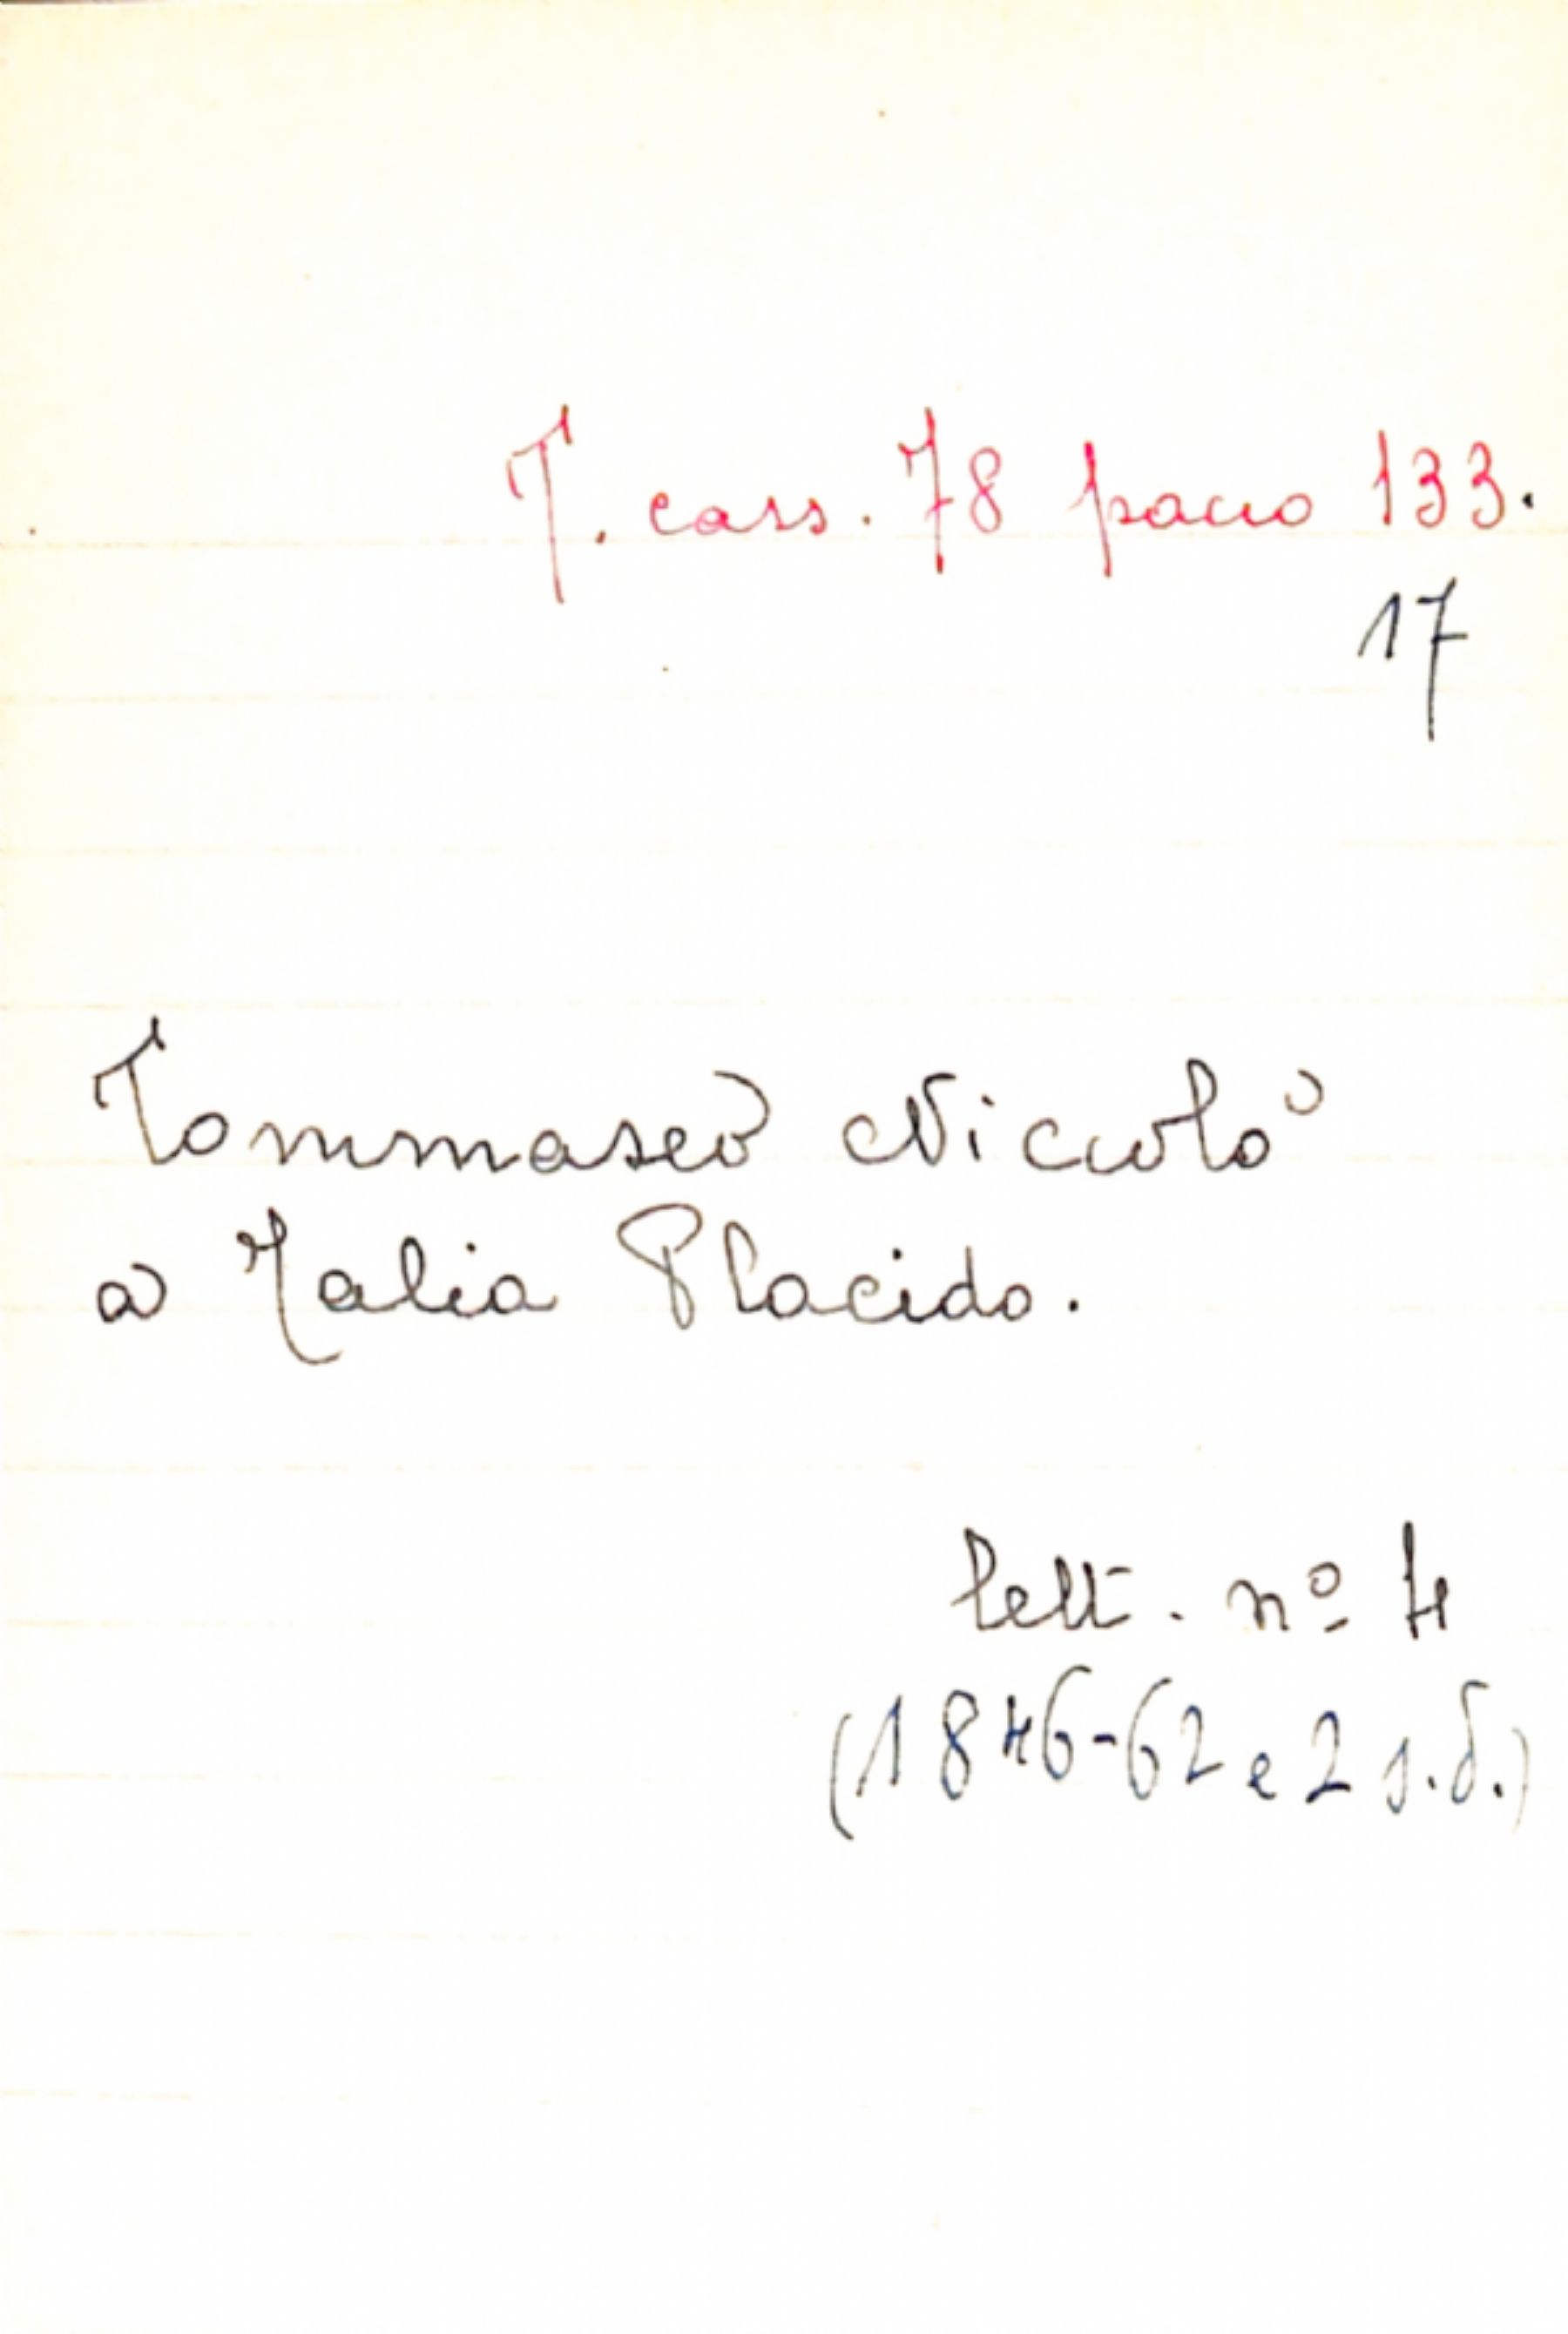 T. cass. 78 pacco 133.
17
Tommaseo Niccolò
a Talia Placido.
lett. nº 4
(1846-62 e 2 s.d.)